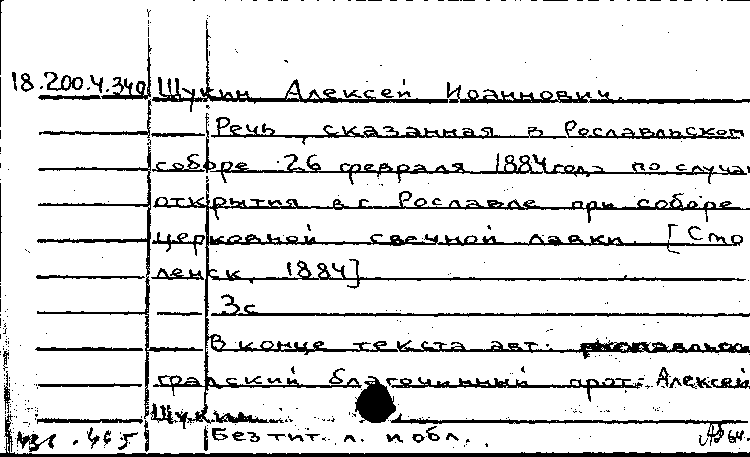 18.200.4.340 Щукин, Алексей Иоаннович.
Речь, сказанная в Рославльском
соборе 26 февраля 1884 года по случаю
открытия в г. Рославле при соборе
церковной свечной лавки. [Смо
ленск, 1884]
3с
В конце текста авт.:
градский благочинный прот. Алексей
Щукин
Без тит. л. и обл.